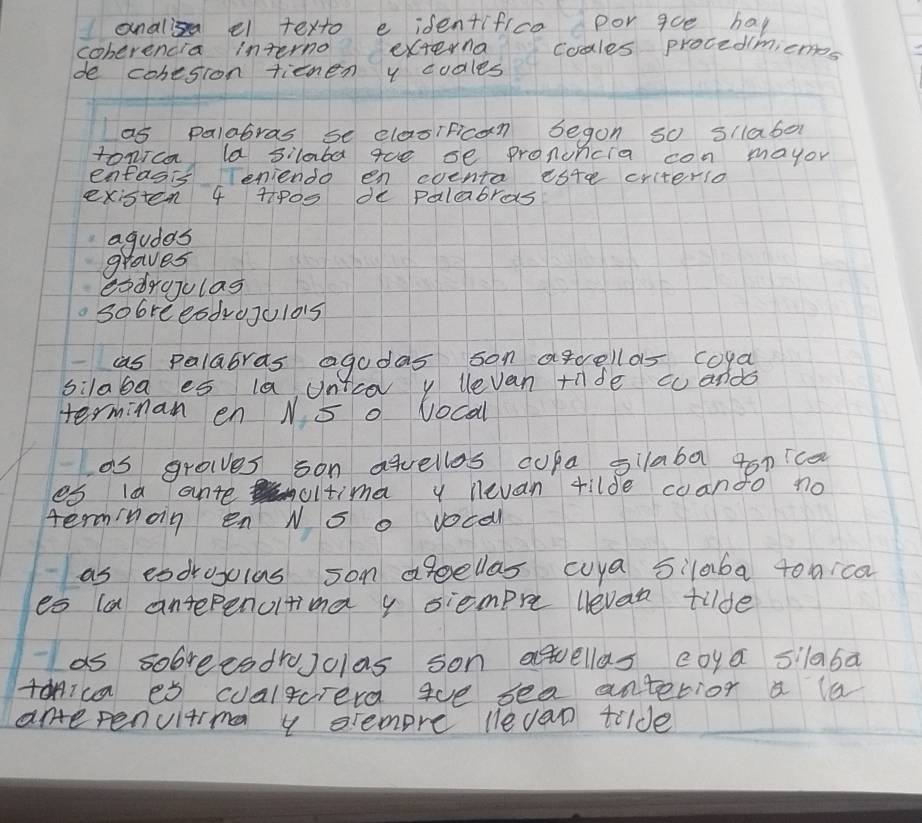 analisa el texto e identifica por que hay
coherencia interno externa cuales procedimientos
de cohesion tienen y cuales
Las palabras se clasifican segun su silaba
tonica la silaba que se pronuncia con mayor
enfasis Teniendo en cuenta este criterio
existen 4 tipos de palabras
• agudas
• graves
• esdrujulas
• sobreesdrujulas
- Las palabras agudas son aquellas cuya
silaba es la untca y llevan tilde cuando
terminan en N, S o Vocal
- Las graves son aquellas cuya silaba tonica
es la ante ultima y llevan tilde cuando no
terminain en N, S o vocal
- Las esdrujulas son aquellas cuya silaba tonica
es la antepenultima y siempre llevan tilde
- Las sobreesdrujulas son aquellas cuya silaba
tonica es cualquiera que sea anterior a la
antepenultima y siempre llevan tilde